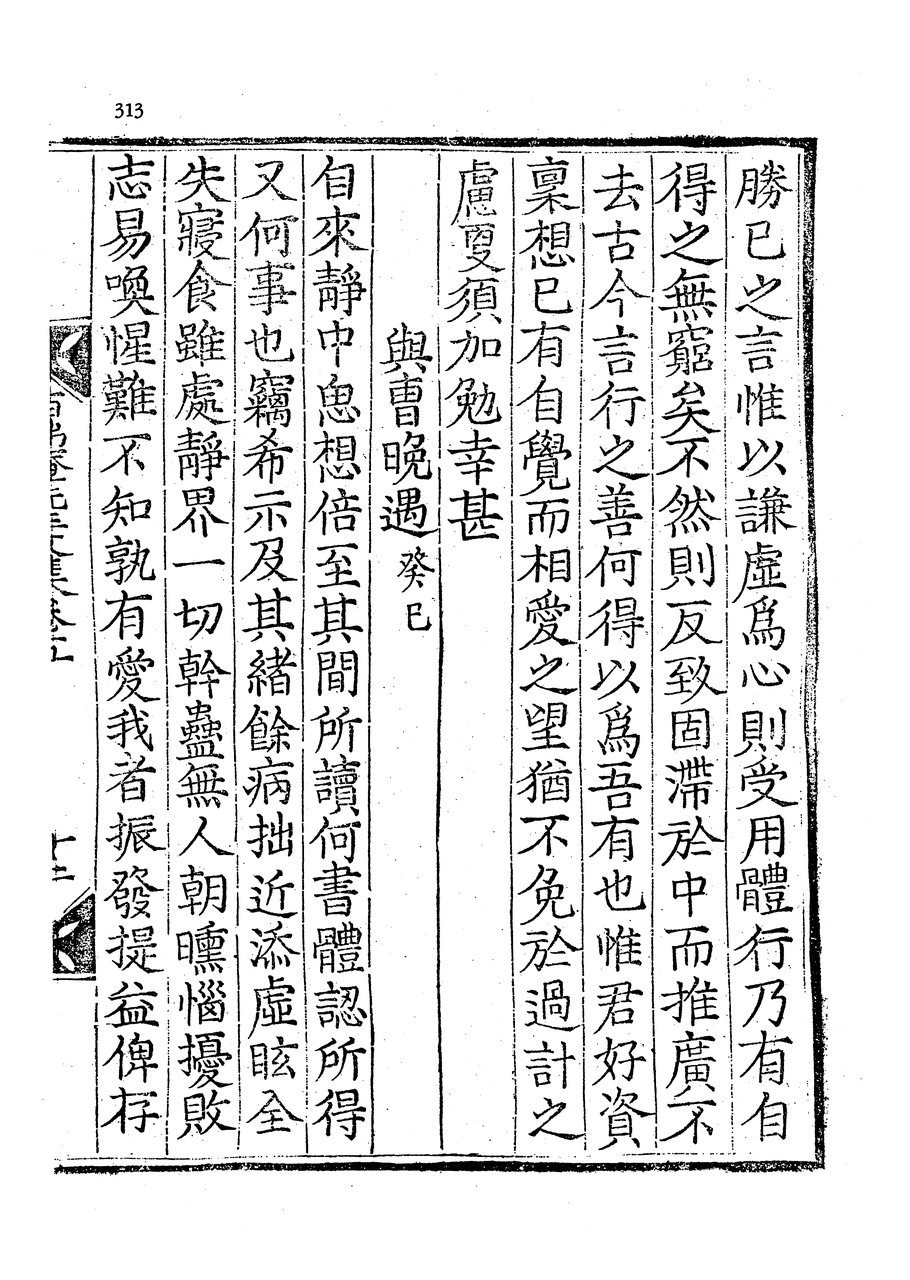 313
勝已之言惟以謙虛爲心則受用體行乃有自
得之無窮矣不然則反致固滯於中而推廣不
去古今言行之善何得以爲吾有也惟君好資
稟想已有自覺而相愛之望猶不免於過計之
慮更須加勉幸甚
與曹晩遇 癸巳
自來靜中思想倍至其間所讀何書體認所得
又何事也竊希示及其緖餘病拙近添虛眩全
失寢食雖處靜界一切幹蠱無人朝曛惱擾敗
志易喚惺難不知孰有愛我者振發提益俾存